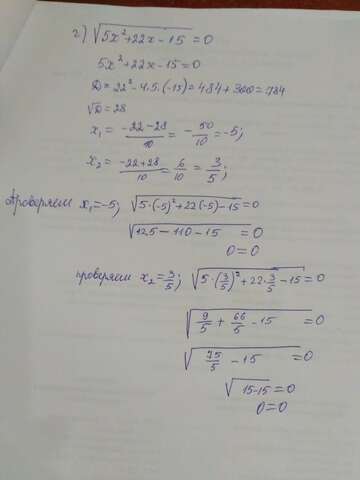 г) √(5x²+22x-15) = 0
5x²+22x-15=0
D=22²-4·5·(-15)=484+300=784
√D=28
x₁ = (-22-28)/10 = -50/10 = -5;
x₂ = (-22+28)/10 = 6/10 = 3/5;
Проверяем x₁=-5; √(5·(-5)²+22(-5)-15)=0
√(125-110-15)=0
0=0
проверяем x₂=3/5; √(5·(3/5)²+22·3/5-15)=0
√(9/5+66/5-15)=0
√(75/5-15)=0
√(15-15)=0
0=0